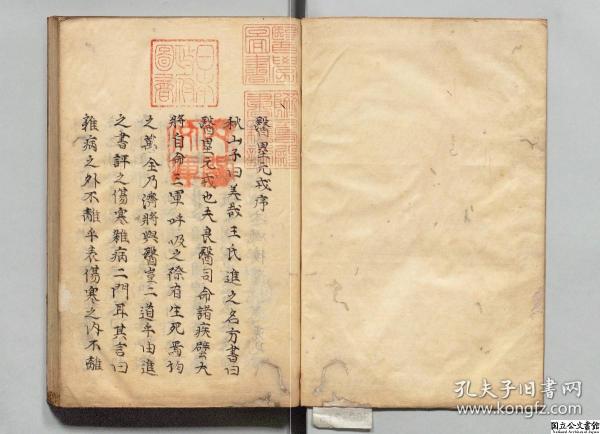 醫壘元戎序
秋山子曰美哉王氏進之名方書曰
醫壘元戎也夫良醫司命諸疾譬大
將自命三軍呼吸之徐有生死焉均
之萬全乃濟將與醫豈二道乎由進
之書評之傷寒雜病二門耳其言曰
雜病之外不離乎表傷寒之內不離
日本
政府
圖書
孔夫子旧书网
www.kongfz.com
国立公文書館
National Archives of Japan